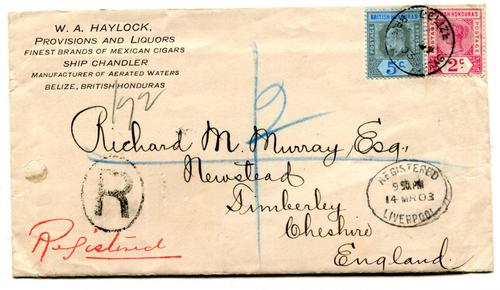 W. A. HAYLOCK,
PROVISIONS AND LIQUORS
FINEST BRANDS OF MEXICAN CIGARS
SHIP CHANDLER
MANUFACTURER OF AERATED WATERS
BELIZE, BRITISH HONDURAS
BRITISH HONDURAS
POSTAGE
5c
BRITISH HONDURAS
2c
BELIZE
192
2
Richard M. Murray Esq.,
Newstead
Timberley
Cheshire
England.
R
Registered
REGISTERED
9 50 PM
14 MR 03
LIVERPOOL